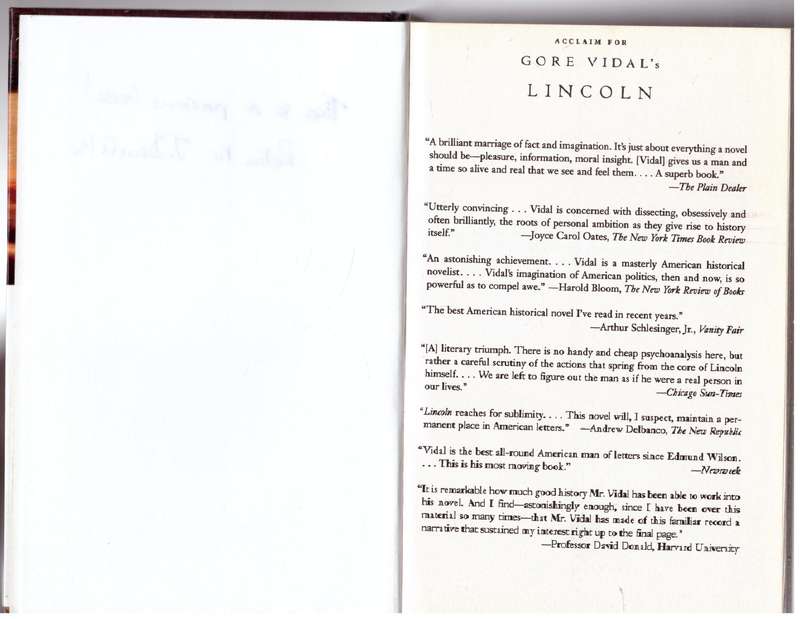 ACCLAIM FOR
GORE VIDAL's
LINCOLN
“A brilliant marriage of fact and imagination. It's just about everything a novel
should be—pleasure, information, moral insight. [Vidal] gives us a man and
a time so alive and real that we see and feel them. . . . A superb book.”
—The Plain Dealer
“Utterly convincing . . . Vidal is concerned with dissecting, obsessively and
often brilliantly, the roots of personal ambition as they give rise to history
itself.” —Joyce Carol Oates, The New York Times Book Review
“An astonishing achievement. . . . Vidal is a masterly American historical
novelist. . . . Vidal's imagination of American politics, then and now, is so
powerful as to compel awe.” —Harold Bloom, The New York Review of Books
“The best American historical novel I've read in recent years.”
—Arthur Schlesinger, Jr., Vanity Fair
“[A] literary triumph. There is no handy and cheap psychoanalysis here, but
rather a careful scrutiny of the actions that spring from the core of Lincoln
himself. . . . We are left to figure out the man as if he were a real person in
our lives.” —Chicago Sun-Times
“Lincoln reaches for sublimity. . . . This novel will, I suspect, maintain a per-
manent place in American letters.” —Andrew Delbanco, The New Republic
“Vidal is the best all-round American man of letters since Edmund Wilson.
. . . This is his most moving book.” —Newsweek
“It is remarkable how much good history Mr. Vidal has been able to work into
his novel. And I find—astonishingly enough, since I have been over this
material so many times—that Mr. Vidal has made of this familiar record a
narrative that sustained my interest right up to the final page.”
—Professor David Donald, Harvard University